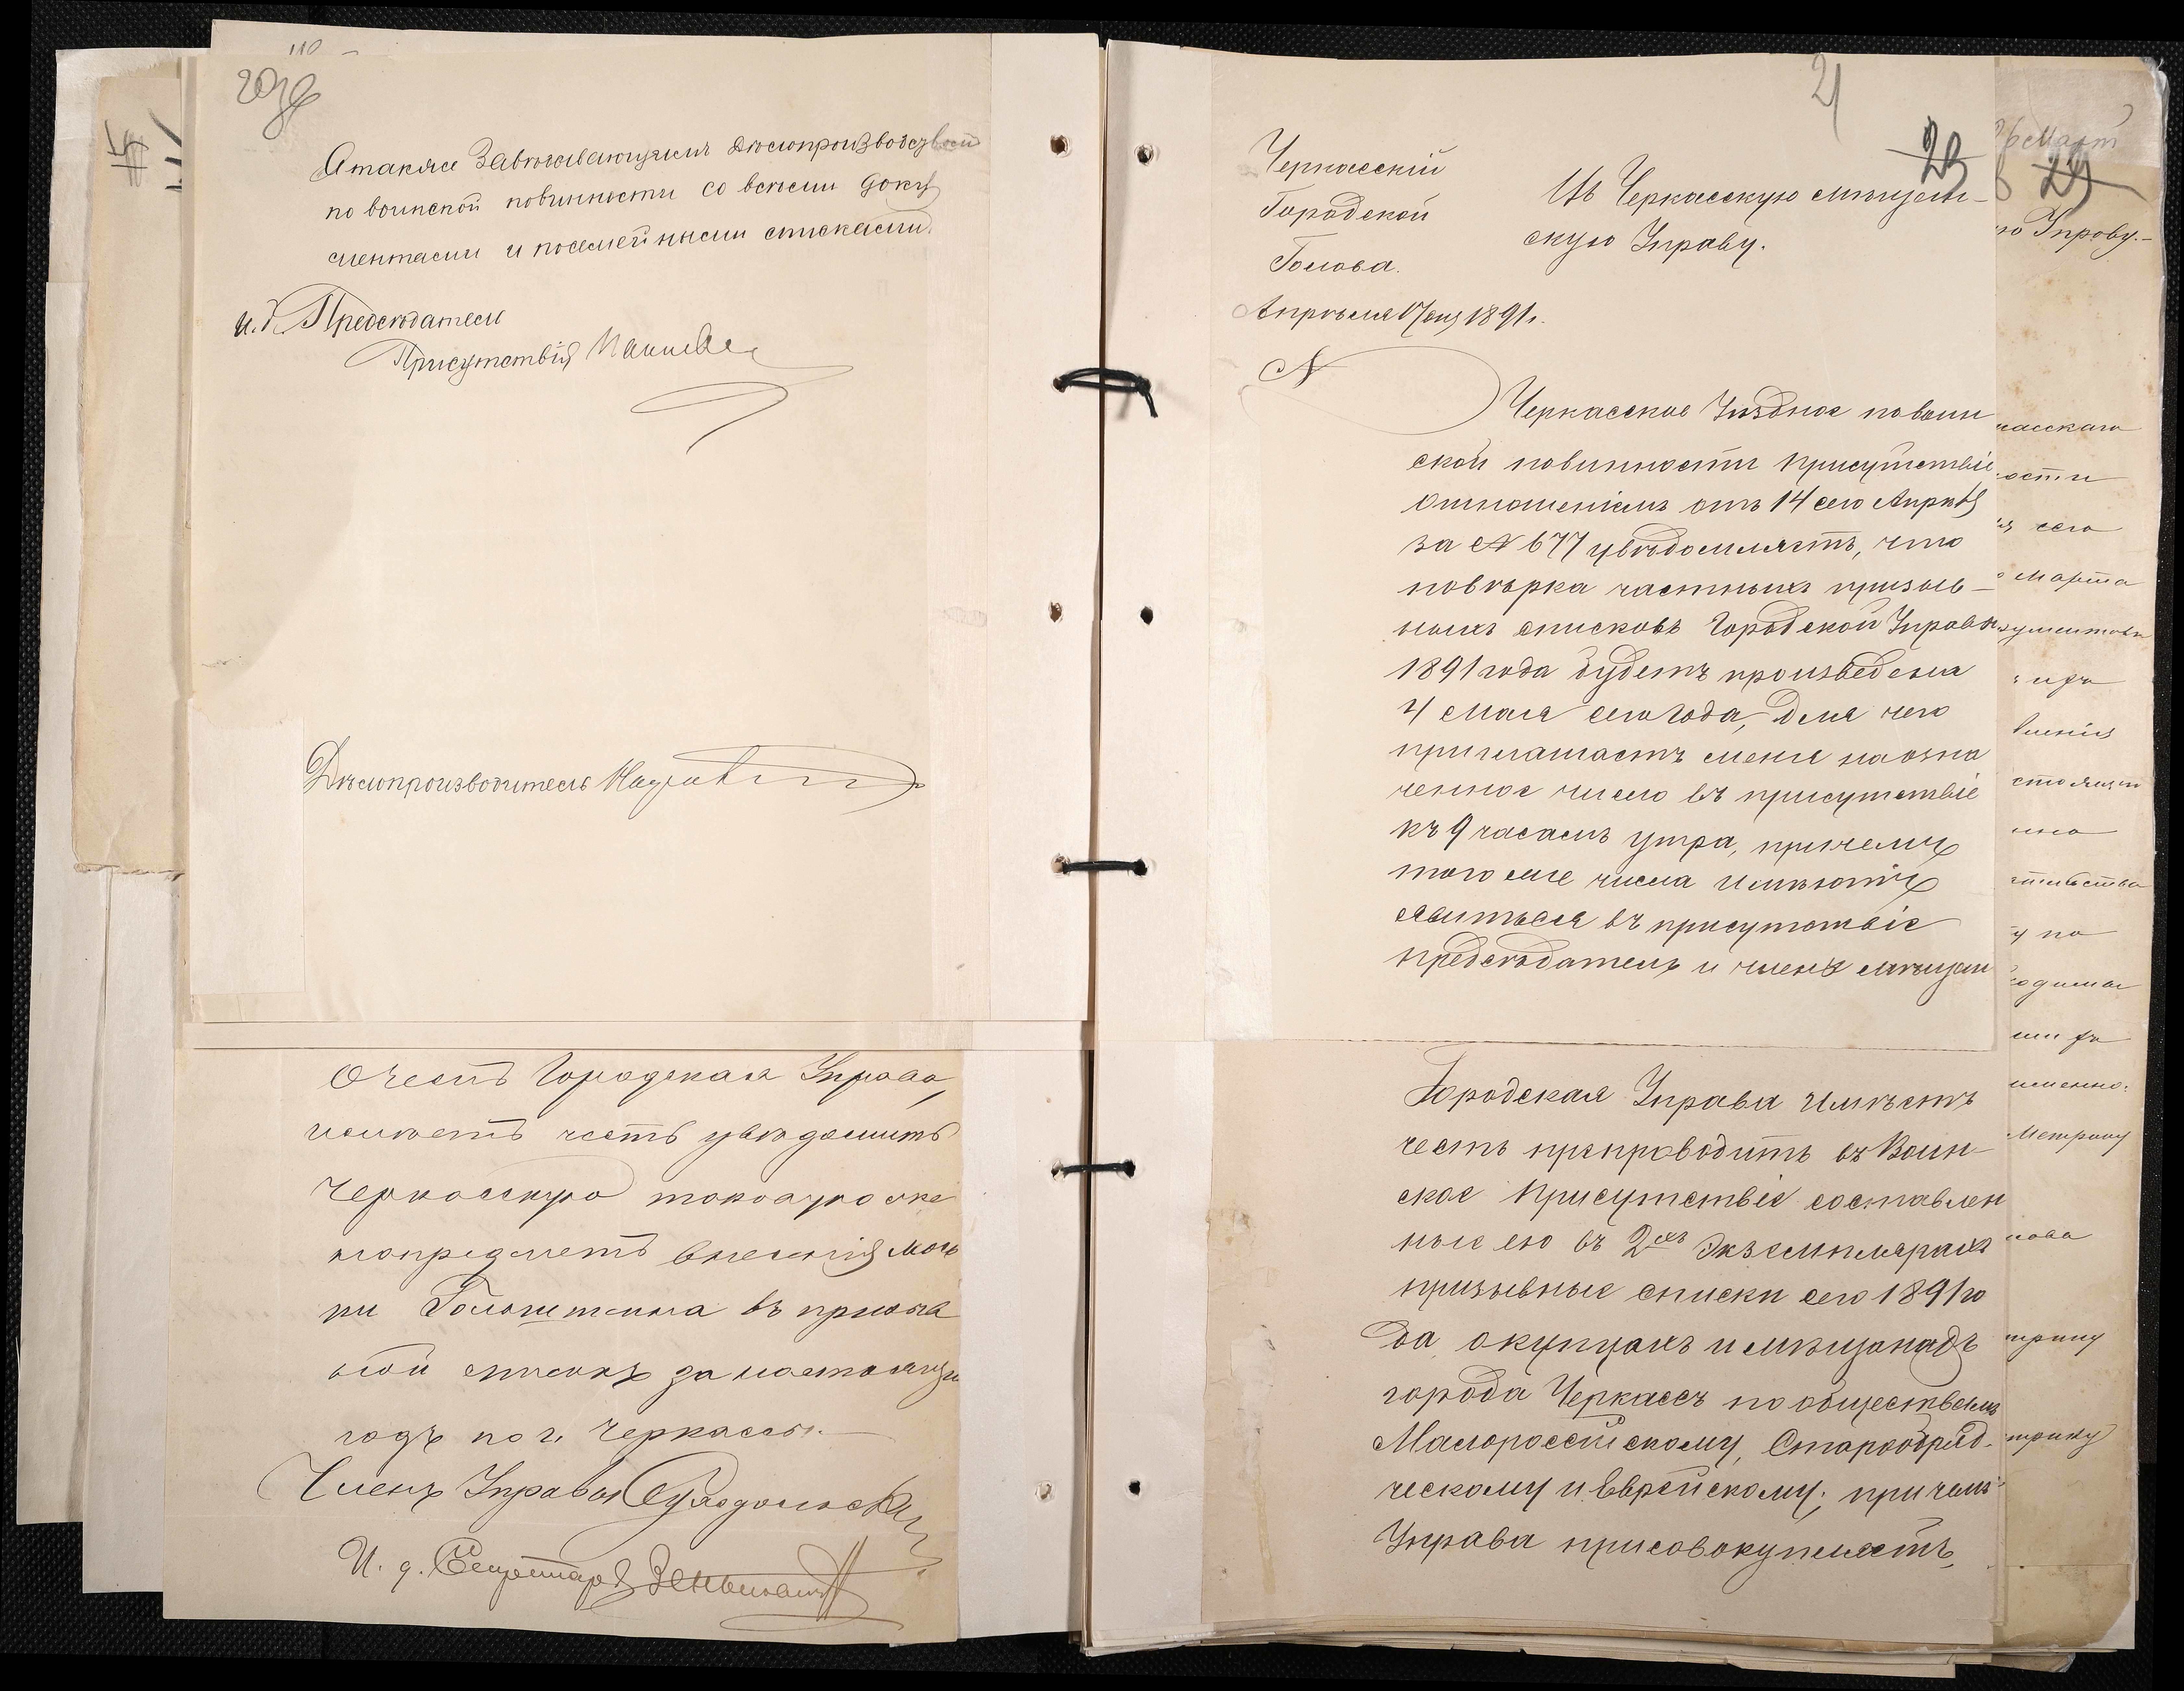 110 —
20 об
А также Завѣдывающимъ дѣлопроизводствомъ
по воинской повинности со всѣми доку
ментами и посемейными списками.
и. д. Предсѣдателя
Присутствія
Дѣлопроизводитель
о чемъ Городская Управа,
имѣетъ честь увѣдомить
Черкасскую таковую же
на предметъ внесенія Мош
ки Гольштеина въ призыв
ной списокъ за настоящій
годъ по г. Черкассы.
Членъ Управы
И. д. Секретаря
21
29
Черкасскій
Городской
Голова.
Апрѣля 17 дня 1891 г.
№
Въ Черкасскую мѣщан-
скую Управу.
Черкасское Уѣздное по воин
ской повинности Присутствіе
отношеніемъ отъ 14 сего Апрѣля
за № 677 увѣдомляетъ, что
повѣрка частныхъ призыв-
ныхъ списковъ Городской Управы
1891 года будетъ произведена
4 Мая сего года, для чего
приглашаетъ меня на озна
ченное число въ присутствіе
къ 9 часамъ утра, причемъ
того же числа имѣютъ
явиться въ присутствіе
предсѣдатель и члены мѣщан
Городская Управа имѣетъ
честь препроводить въ Воин-
ское Присутствіе составлен
ные ею въ 2хъ экземплярахъ
призывные списки сего 1891 го
да о купцахъ и мѣщанахъ
города Черкассъ по обществамъ
Малороссійскому, Старообряд-
ческому и Еврейскому; причемъ
Управа присовокупляетъ,
Март
29
ю Управу.-
касскаго
ости
сего
Марта
кументовъ
вленія
стоящи
нно
тельства
у по
одимы
именно:
Метрику
нова
трику
трику